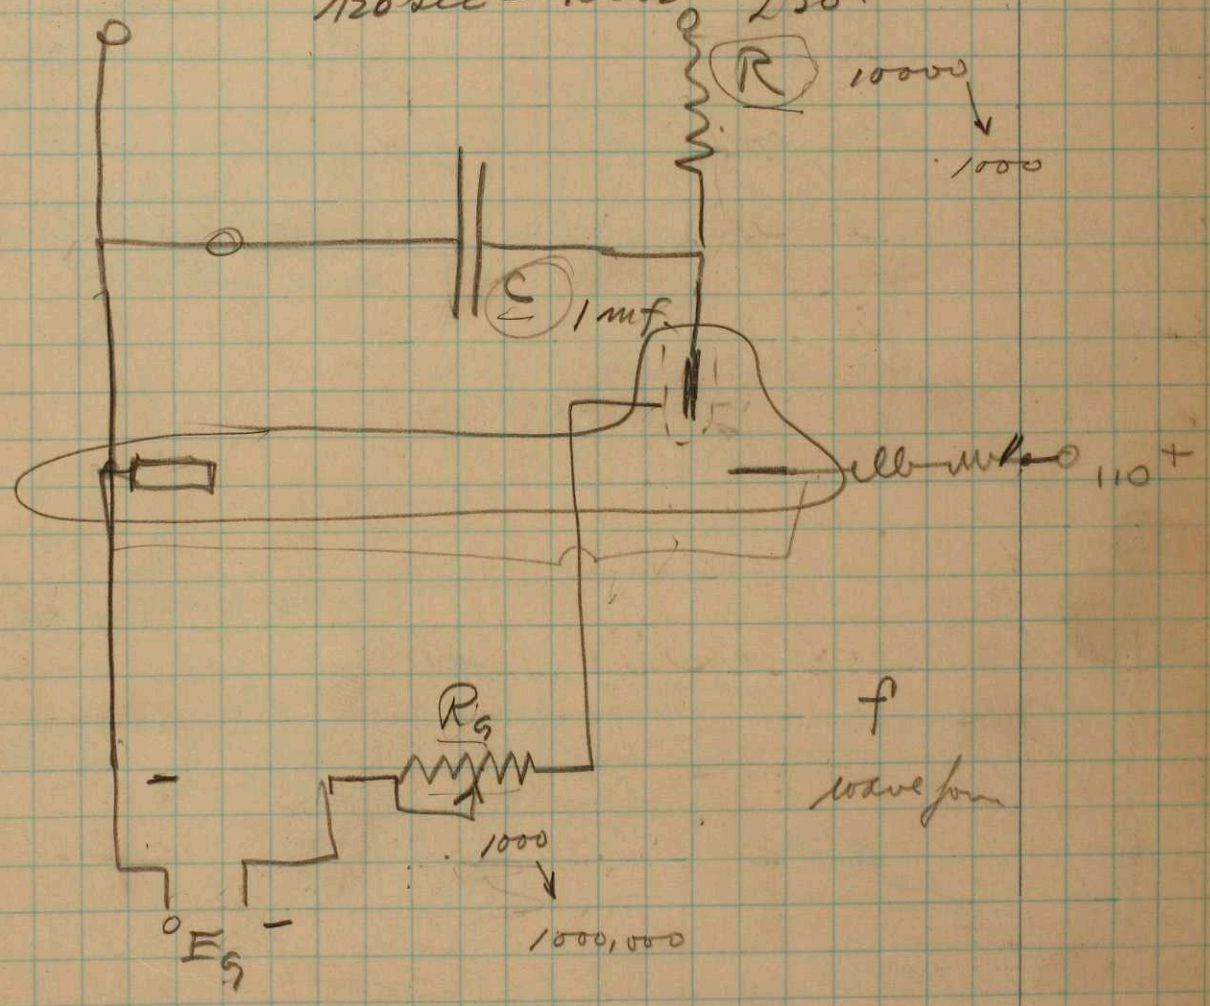 R 10000
1000
C 1 mf.
110 +
Rg
f
wave form
1000
1000,000
Eg